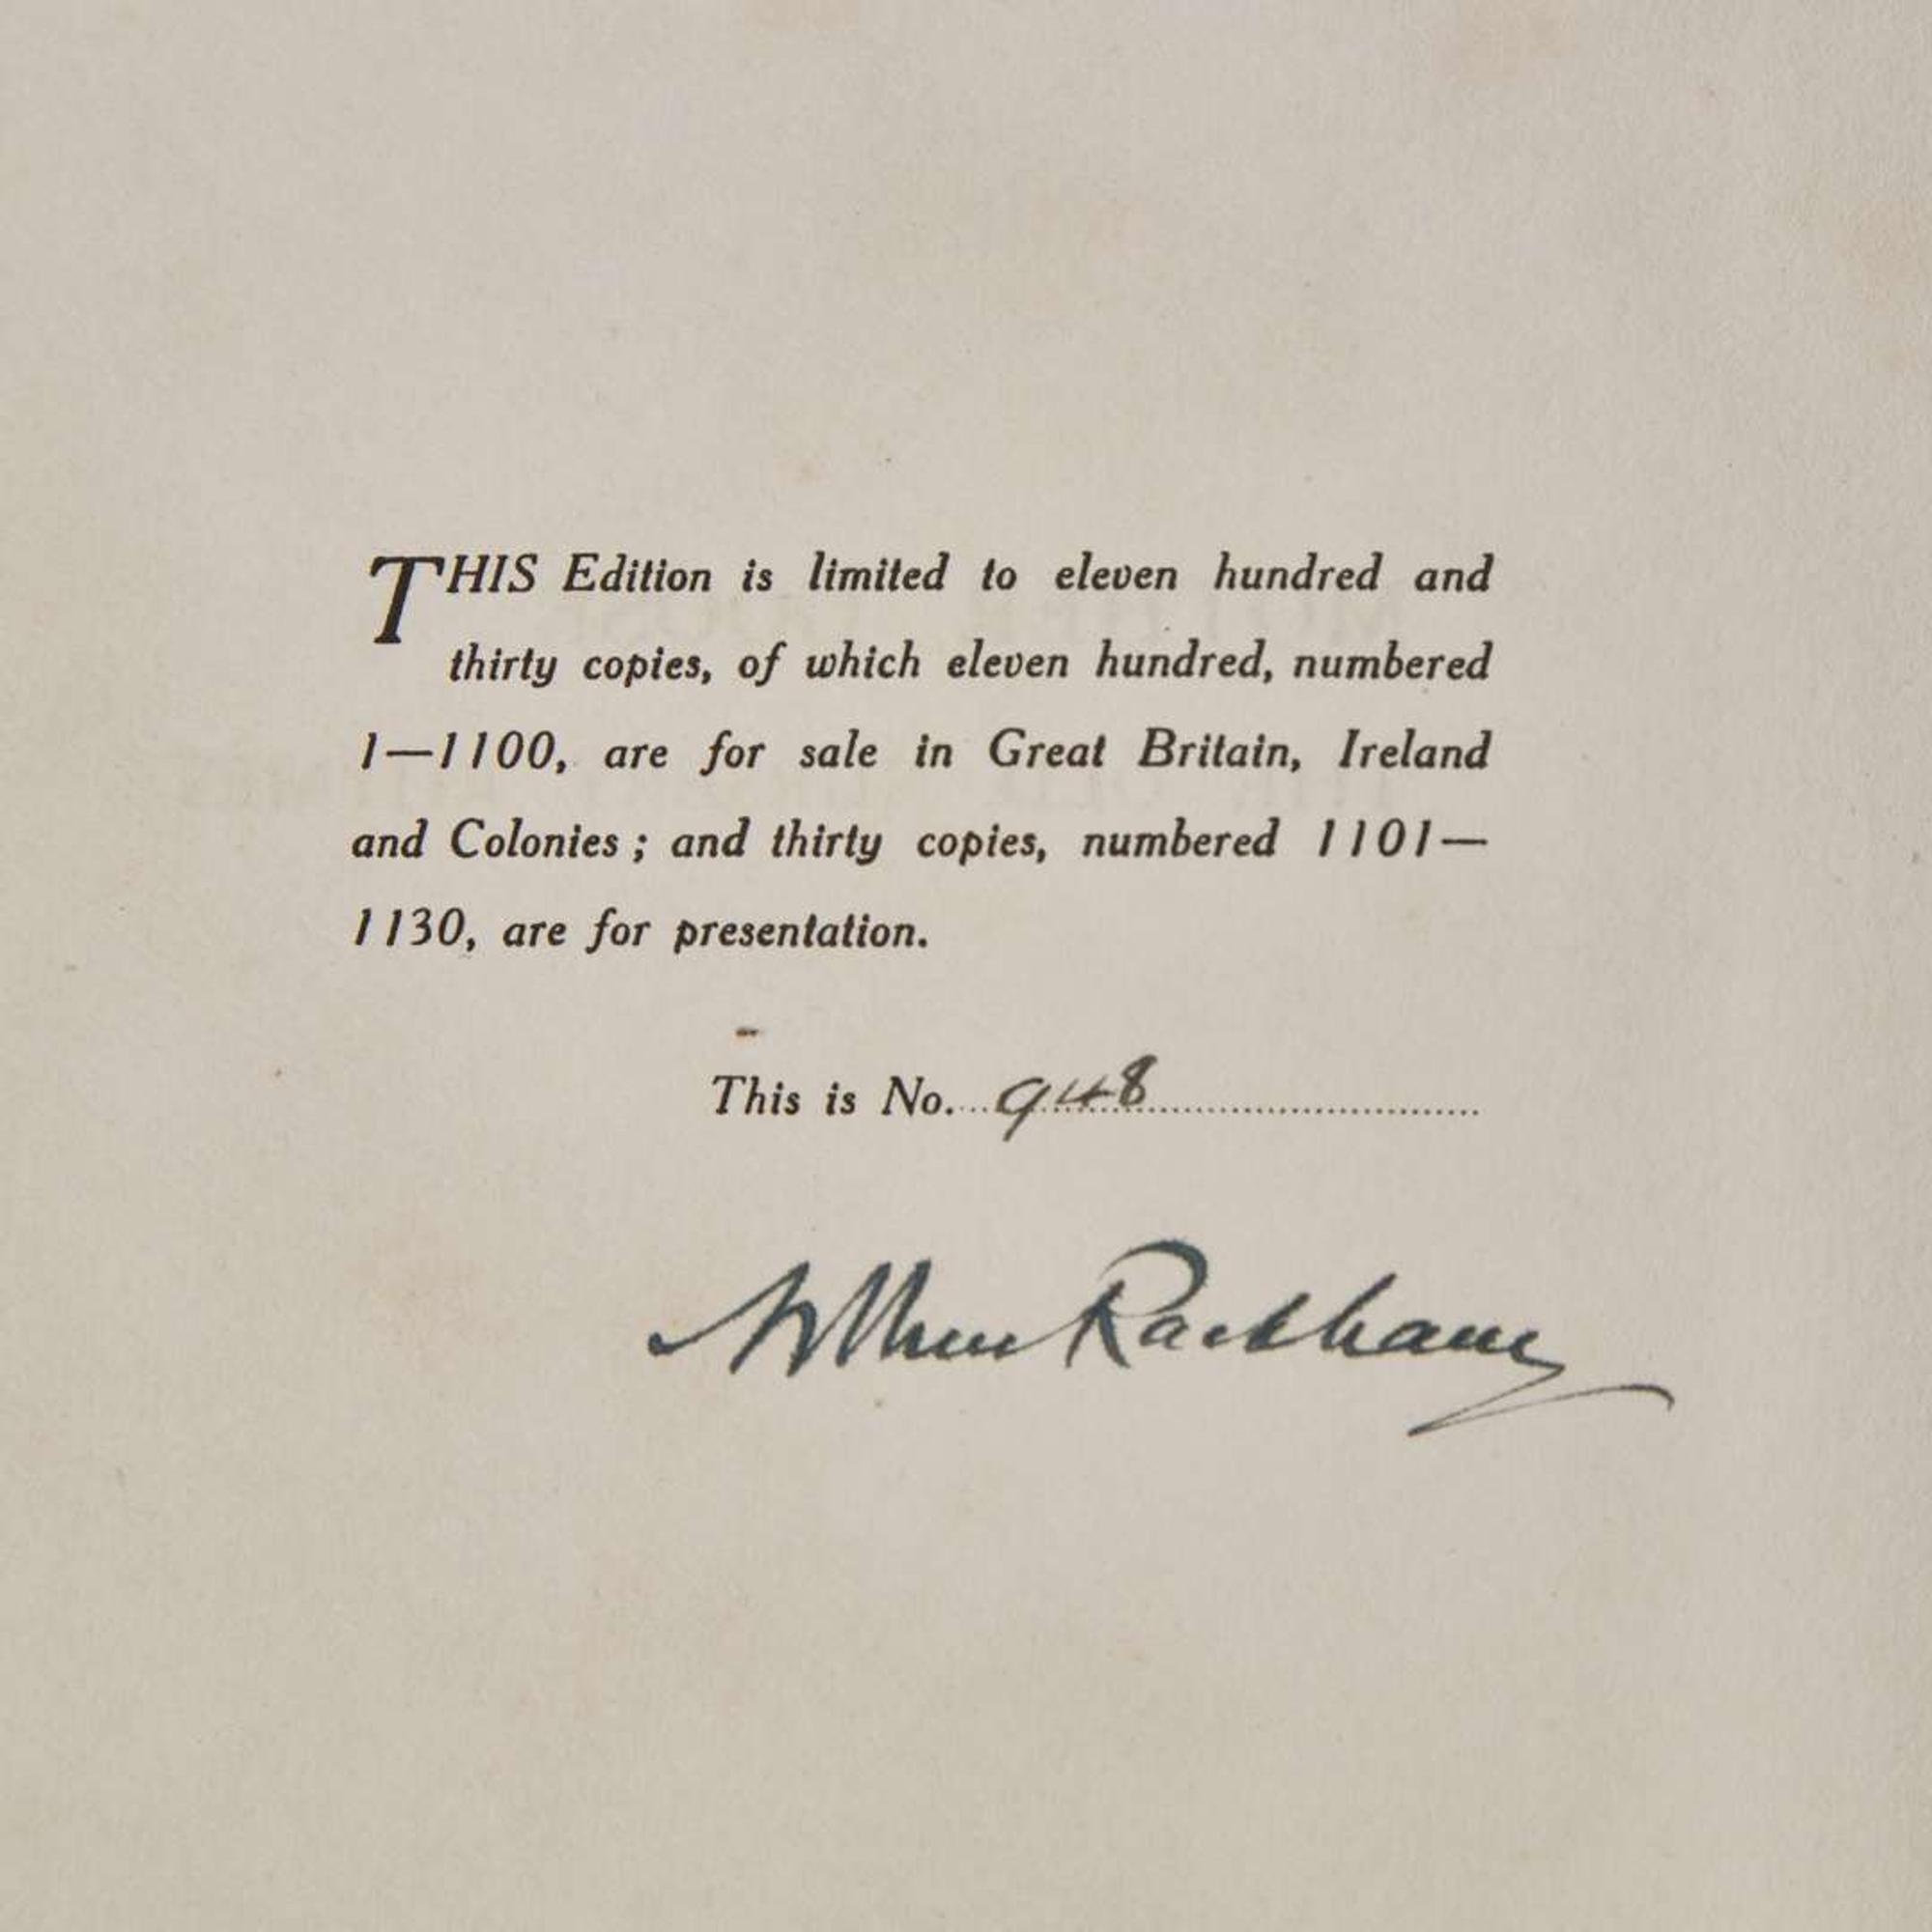 THIS Edition is limited to eleven hundred and
thirty copies, of which eleven hundred, numbered
1—1100, are for sale in Great Britain, Ireland
and Colonies; and thirty copies, numbered 1101—
1130, are for presentation.
This is No. 948
Arthur Rackham